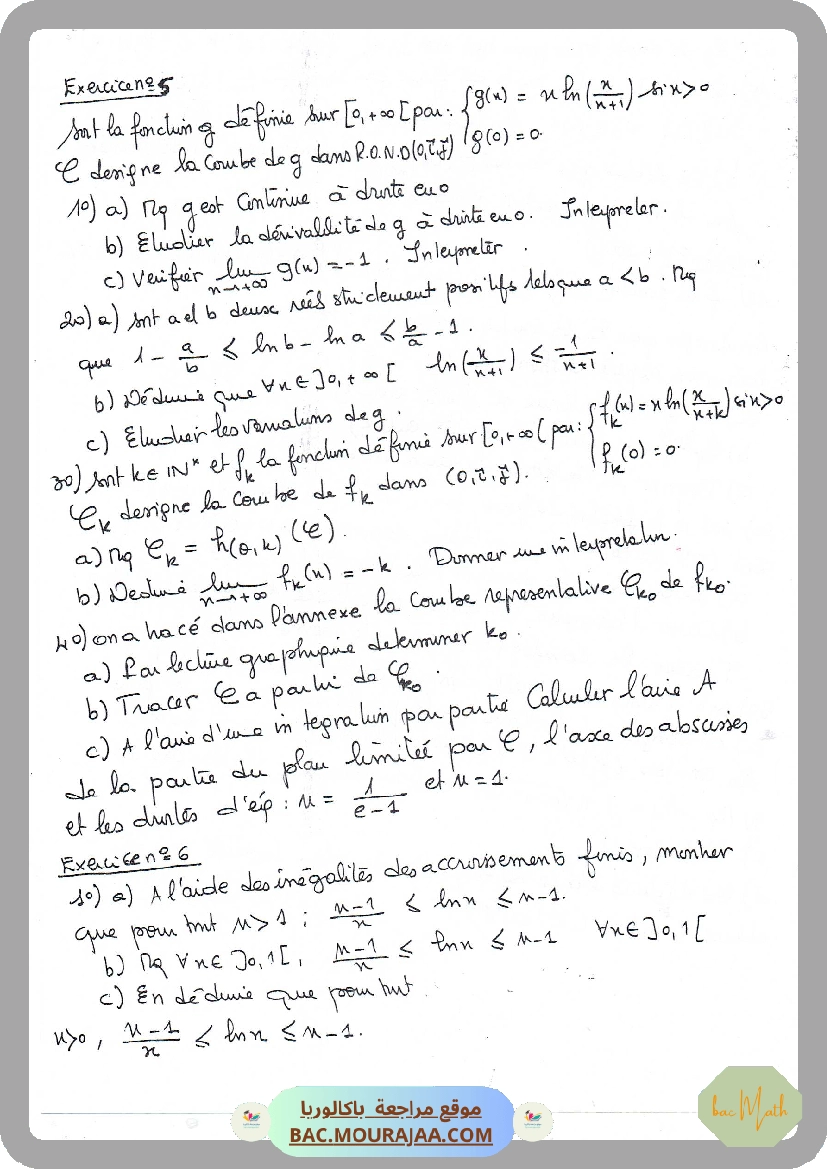 Exercice nº 5
Soit la fonction g définie sur [0, +∞[ par : { g(x) = x ln(x/(x+1)) si x>0
g(0) = 0.
𝒞 designe la Courbe de g dans R.O.N.D (O, i, j)
1º) a) Mq g est Continue à droite en 0
b) Etudier la dérivabilité de g à droite en 0. Interpreter.
c) Verifier lim x→+∞ g(x) = -1. Interpreter.
2º) a) Soit a et b deux réels strictement positifs tels que a < b. Mq
que 1 - a/b ≤ ln b - ln a ≤ b/a - 1.
b) Déduire que ∀x ∈ ]0, +∞[ ln(x/(x+1)) ≤ -1/(x+1).
c) Etudier les variations de g.
3º) Soit k ∈ IN* et fk la fonction définie sur [0, +∞[ par : { fk(x) = x ln(x/(x+k)) si x>0
fk(0) = 0.
𝒞k designe la Courbe de fk dans (O, i, j).
a) Mq 𝒞k = h(O, k) (𝒞).
b) Deduire lim x→+∞ fk(x) = -k. Donner une interpretation.
4º) on a tracé dans l'annexe la courbe representative 𝒞k0 de fk0.
a) Par lecture graphique determiner k0.
b) Tracer 𝒞 a partir de 𝒞k0.
c) A l'aide d'une integration par partie Calculer l'aire A
de la partie du plan limitée par 𝒞, l'axe des abscisses
et les droites d'eq : x = 1/(e-1) et x = 1.
Exercice nº 6
1º) a) A l'aide des inégalités des accroissements finis, montrer
que pour tout x > 1 ; (x-1)/x ≤ ln x ≤ x-1.
b) Mq ∀x ∈ ]0, 1[, (x-1)/x ≤ ln x ≤ x-1 ∀x ∈ ]0, 1[
c) En déduire que pour tout
x>0, (x-1)/x ≤ ln x ≤ x-1.
موقع مراجعة باكالوريا
BAC.MOURAJAA.COM
bac Math